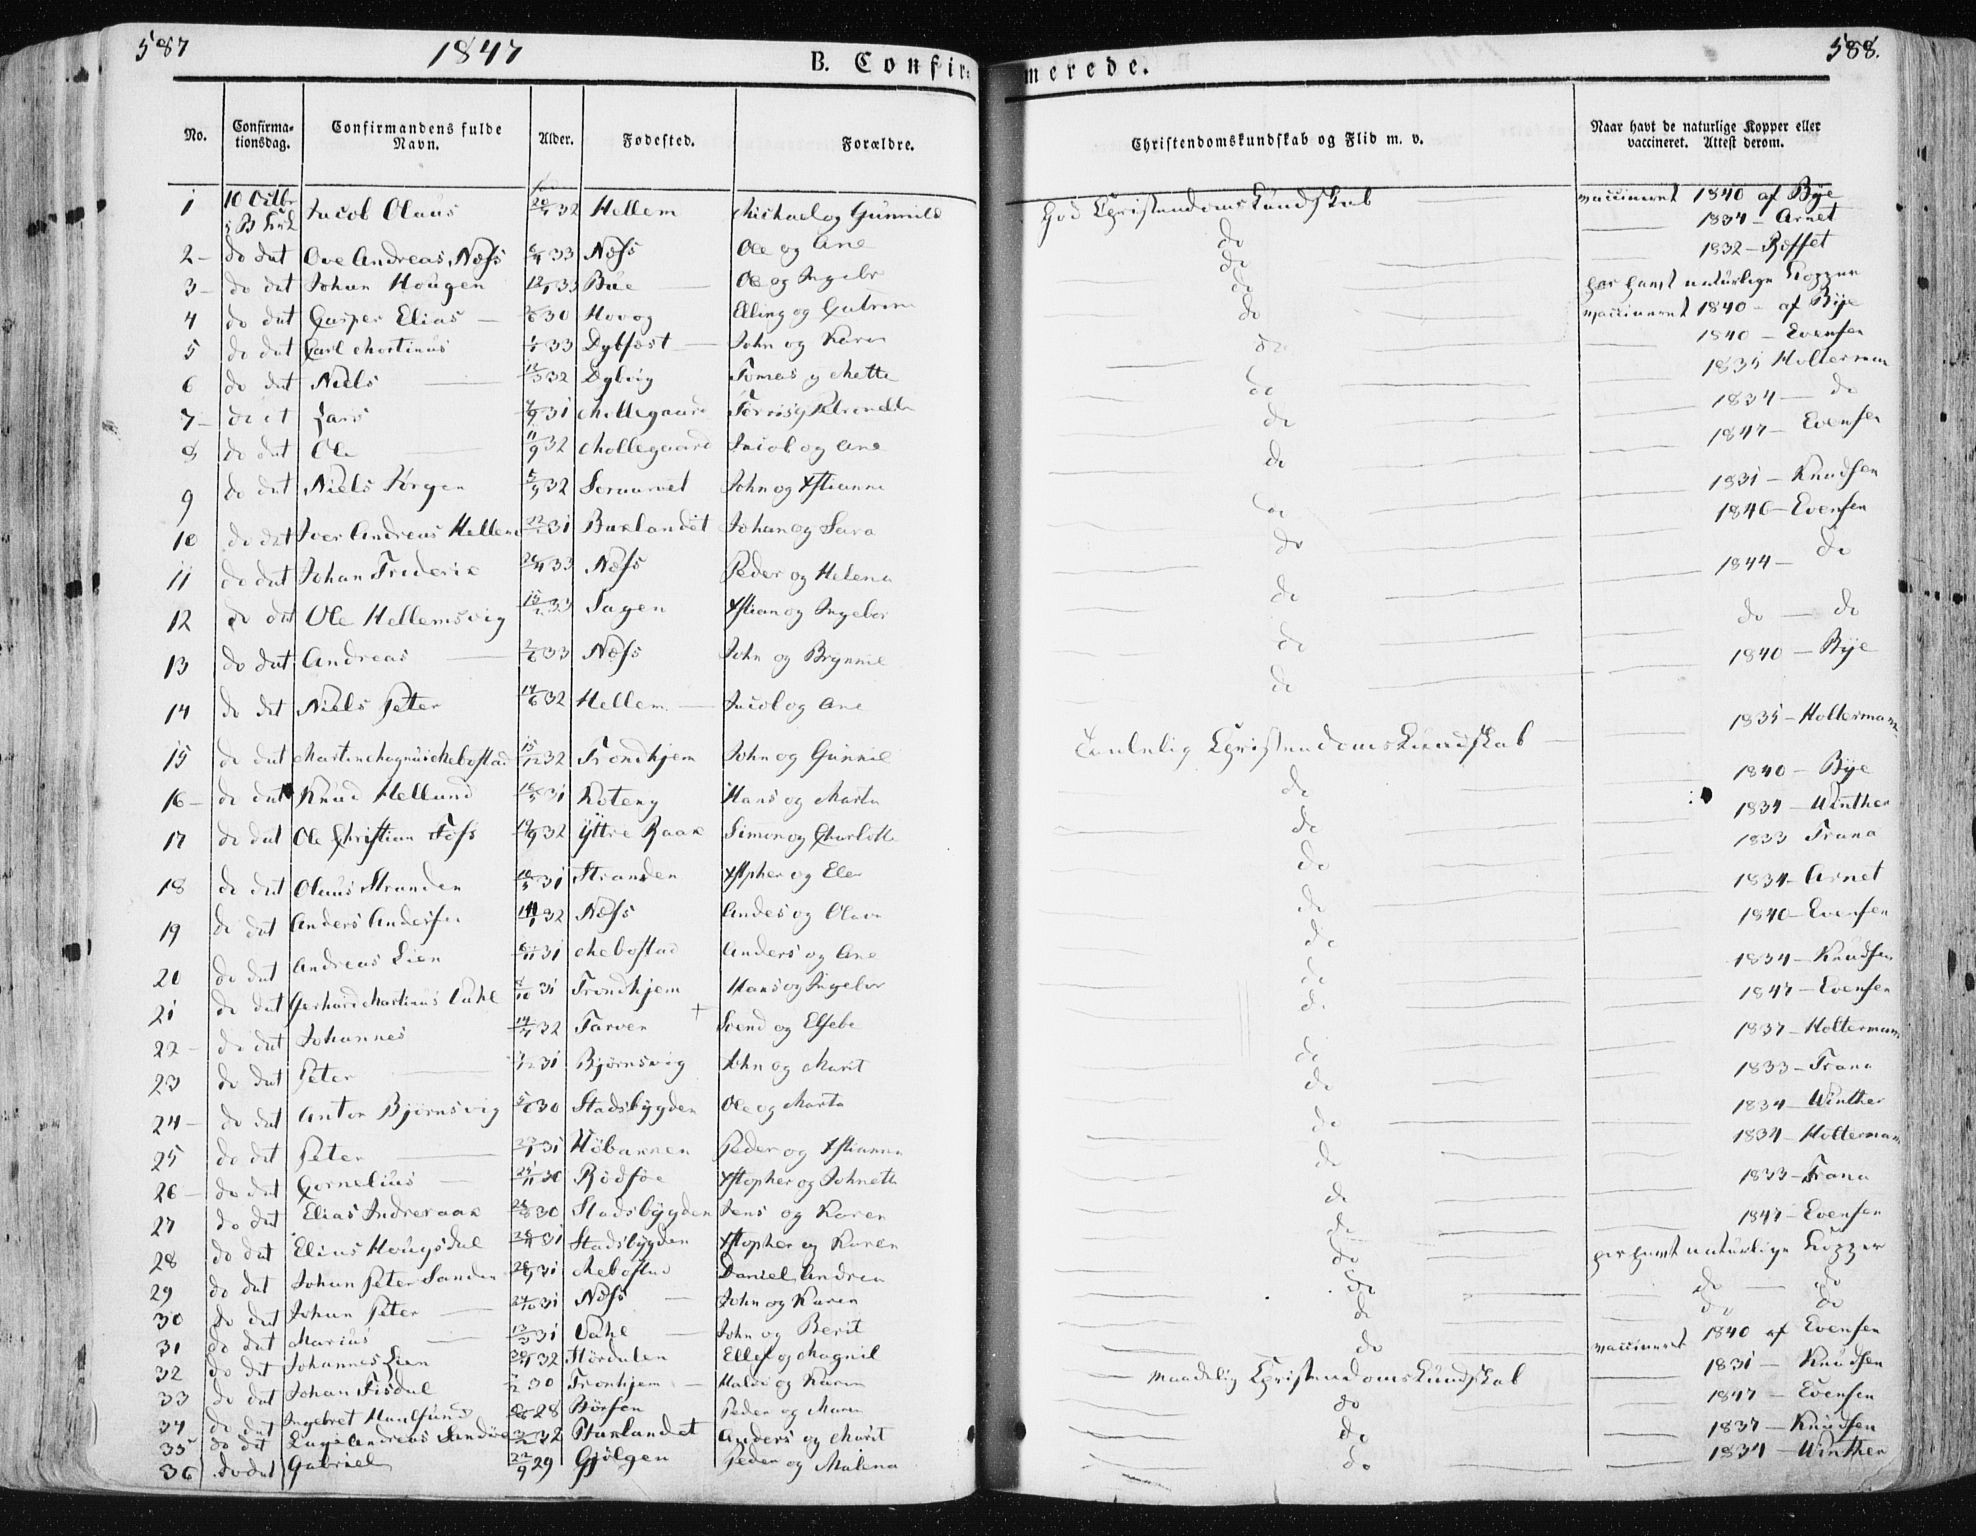 587 1847 B. Confir-
merede. 588.
No. Confirmationsdag. Confirmandens fulde Navn. Alder. Fødested. Forældre. Christendomskundskab og Flid m. v. Naar havt de naturlige Kopper eller vaccineret. Attest derom.
1 10 Octbr Jacob Olaus 32 Hellem Michael og Gunnild God Christendomskundskab vaccineret 1840 af Bye
1834 - Arnet
2 - do dat Ove Andreas Næss 33 Næss Ole og Ane do 1832 - Rosset
3 - do dat Johan Hougen 33 Bue Ole og Ingebr do har havt naturlige Kopper
4 do dat Casper Elias 30 Hovog Elling og do vaccineret 1840 - af Bye
5 do dat Carl Mortinus 33 Dybfest John og Karen do 1840 - Evensen
6 do dat Niels 32 Dybvig Tomas og Mette do 1835 Holterman
7 - do dat Lars 31 Mollegaard do 1834 - do
8 do dat Ole 11/9 32 Mollegaard Jacob og Ane do 1847 - Evensen
9 do dat Niels Jørgen 32 John og Xstianna do 1831 - Knudsen
10 do dat Iver Andreas Hellem 31 Buxlandet Johan og Sara do 1840 - Evensen
11 do dat Johan Frederik 33 Næss Peder og Helena do 1844 - do
12 do dat Ole Hellemsvig 33 Hagen Xstian og Ingebor do do - do
13 do dat Andreas 33 Næss John og Brynnil do 1840 - Bye
14 do dat Niels Peter 14/6 32 Hellem Jacob og Ane do 1835 - Holterman
15 do dat Martin Magnus Mebostad 15/12 32 Trondhjem John og Gunnil Christendomskundskab
16 - do dat Knud Hellund 31 Koteng Hans og Marta do 1840 - Bye
17 do dat Ole Christian Foss 19/9 32 Yttre Raak Simon og Charlotte do 1834 - Winther
1833 Trana
18 do dat Olaus Stranden 31 Stranden Xstpher og Elen do 1834 - Arnet
19 do dat Anders Andersen 32 Næss Andes og Olava do 1840 - Evensen
20 do dat Andreas Lien 31 Mebostad Anders og Ane do 1834 - Knudsen
21 do dat Gerhard Martinus Vahl 8/10 31 Trondhjem Hans og Ingebor do 1847 - Evensen
22 - do dat Johannes 32 Tarven Svend og Elsebe do 1837 - Holterman
23 do dat Peter 31 Bjørnsvig John og Marit do 1833 - Trana
24 - do dat Anton Bjørnsvig 30 Stadsbygden Ole og Marta do 1834 - Winther
25 do dat Peter 31 Peder og Xstianna do 1834 - Holterman
26 - do dat Cornelius 30 Rødsøe Xstopher og Johnetta do 1833 - Trana
27 do dat Elias Indreraak 30 Stadsbygden Jens og Karen do 1847 - Evensen
28 do dat Elias Hougsdal 31 Stadsbygden Xstopher og Karen do har havt naturlige Kopper
29 do dat Johan Peter Sanden 31 Mebostad Daniel, Andrea do do - do
30 do dat Johan Peter 24/10 31 Næss John og Karen do do - do
31 do dat Marius 13/3 31 Vahl John og Berit do vaccineret 1840 af Evensen
32 do dat Johannes Lien 32 Størdalen Ellef og Magnil do 1831 - Knudsen
33 do dat Johan Fisdal 30 Tronhjem Halvo og Karen Maadelig Christendomskundskab 1847 - Evensen
34 do dat Ingebret 28 Børsen Peder og Maren do 1837 - Knudsen
35 do dat Andreas Sandøe 32 Buxlandet Anders og Marit do 1834 - Winther
36 do dat Gabriel 22/9 29 Gjølgen Peder og Malena do